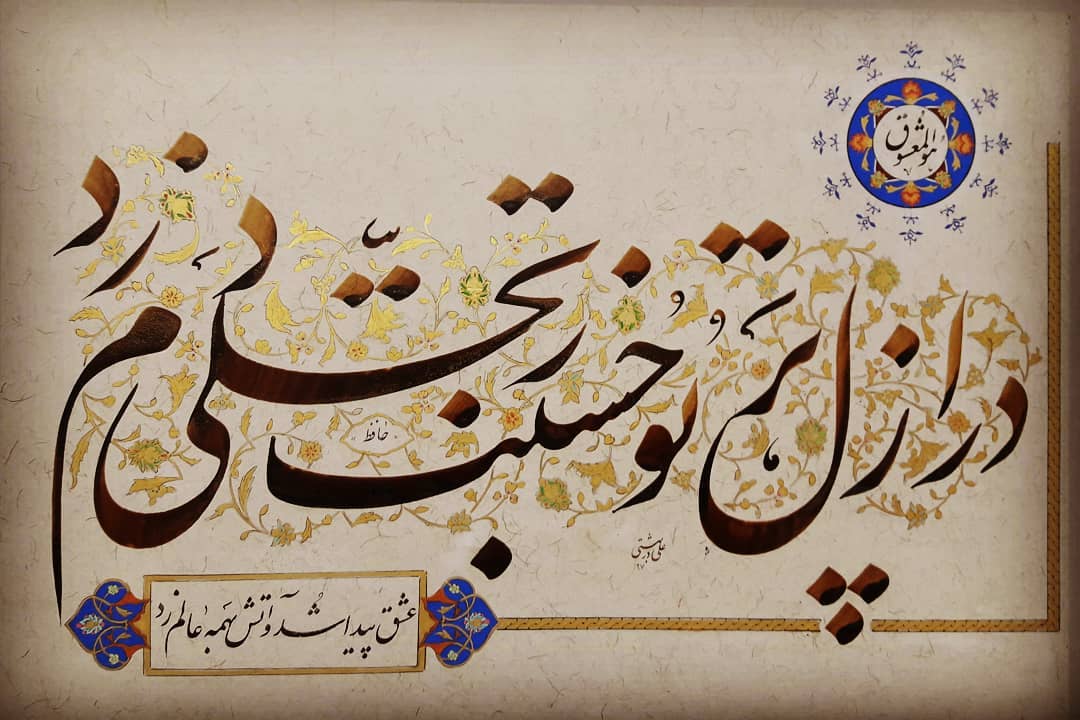 هوالمعشوق
در ازل پرتو حسنت ز تجلّی دم زد
حافظ
علی
عشق پیدا شد و آتش بهمه عالم زد